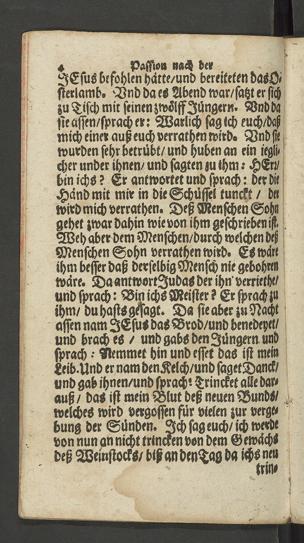 4 Passion nach der
JEsus befohlen hätte/und bereiteten das O-
sterlamb. Vnd da es Abend war/satzt er sich
zu Tisch mit seinen zwölff Jüngern. Vnd da
sie assen/sprach er: Warlich sag ich euch/daß
mich einer auß euch verrathen wird. Vnd sie
wurden sehr betrübt/und huben an ein iegli-
cher under ihnen/und sagten zu ihm: HErr/
bin ichs? Er antwortet und sprach: der die
Hand mit mir in die Schüssel tunckt/ der
wird mich verrathen. Deß Menschen Sohn
gehet zwar dahin wie von ihm geschrieben ist.
Weh aber dem Menschen/durch welchen deß
Menschen Sohn verrathen wird. Es wäre
ihm besser daß derselbig Mensch nie gebohren
wäre. Da antwort Judas der ihn verriethe/
und sprach: Bin ichs Meister? Er sprach zu
ihm/ du hasts gesagt. Da sie aber zu Nacht
assen nam JEsus das Brod/und benedeyet/
und brach es / und gabs den Jüngern und
sprach: Nemmet hin und esset das ist mein
Leib. Und er nam den Kelch/und saget Danck/
und gab ihnen/und sprach: Trincket alle dar-
auß/ das ist mein Blut deß neuen Bunds/
welches wird vergossen für vielen zur verge-
bung der Sünden. Ich sag euch/ ich werde
von nun an nicht trincken von dem Gewächs
deß Weinstocks/ biß an den Tag da ichs neu
trin-